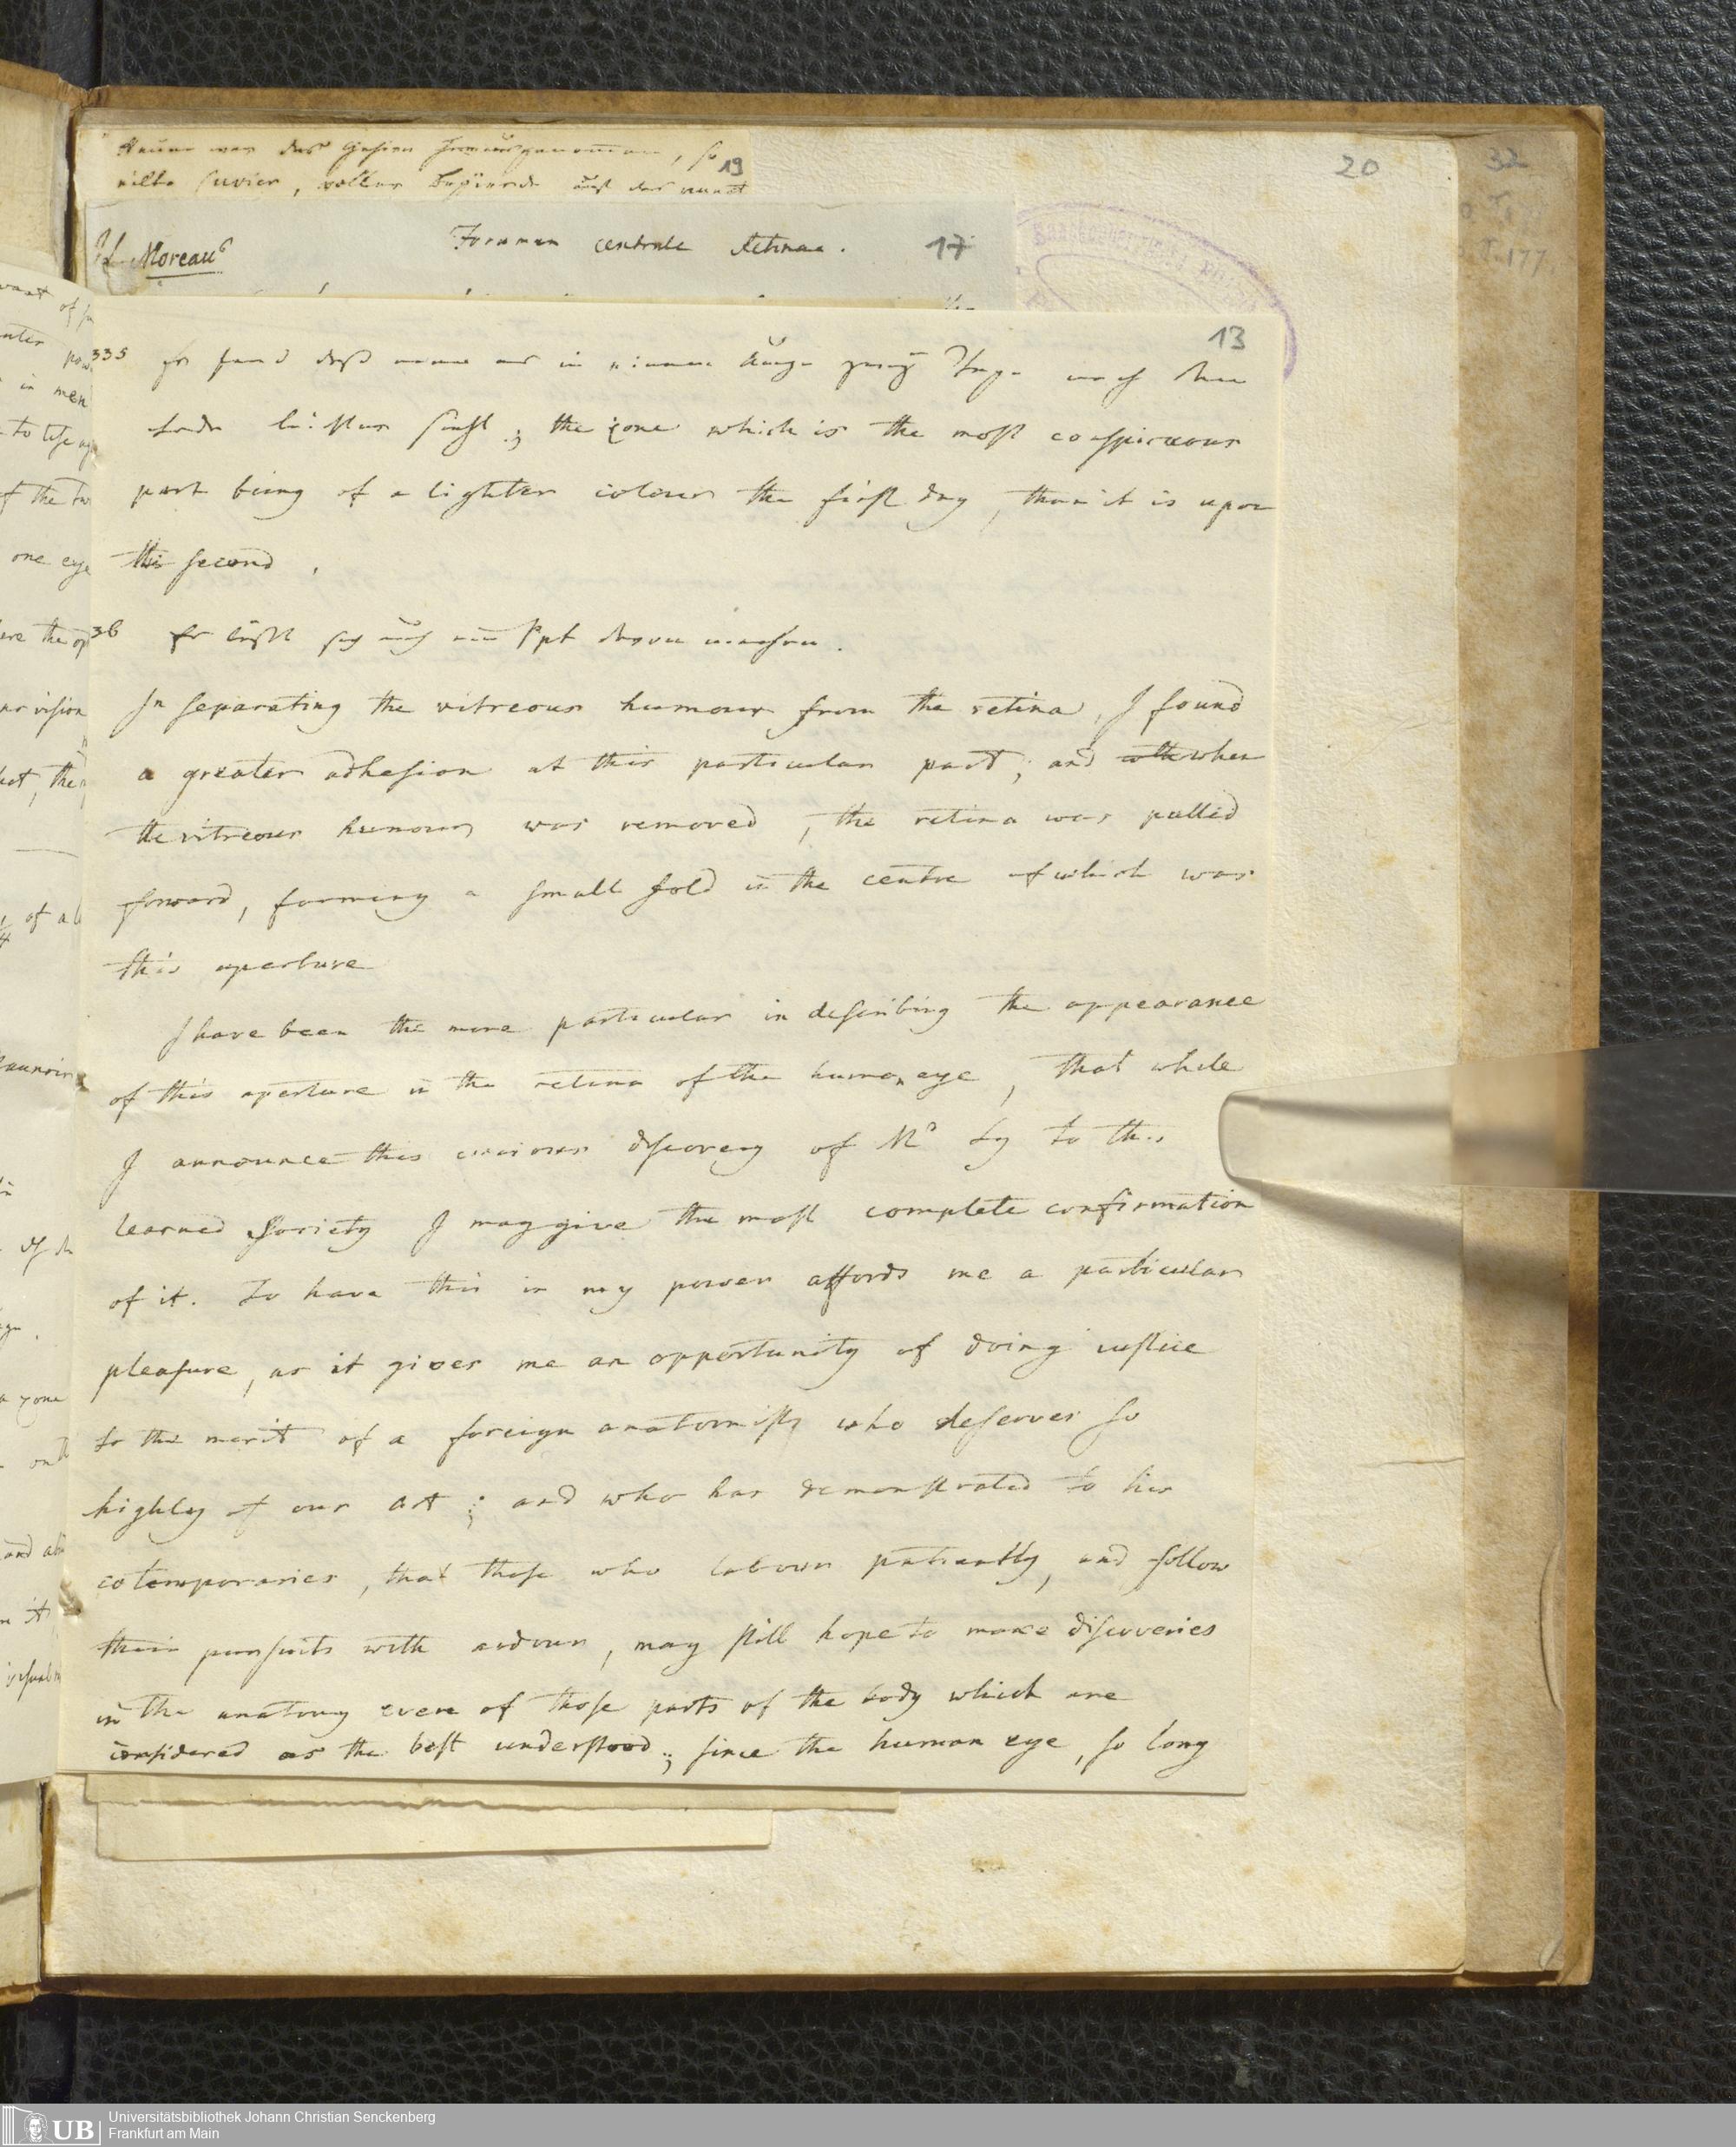 20
32
19
Kaum war das Gehirn herausgenommen, so
eilte Cuvier, voller Begierde
Moreau
Foramen centrale Retinae.
17
13
335 Er fand daß man es in einem Auge zwey Tage nach dem
Tode leichter sieht; the zone which is the most conspicuous
part being of a lighter colour the first day, than it is upon
the second.
36 Er läßt sich auch ein Ppt davon machen.
In separating the vitreous humour from the retina, I found
a greater adhesion at this particular part; and when
the vitreous humour was removed, the retina was pulled
forward, forming a small fold in the centre of which was
this aperture
I have been the more particular in describing the appearance
of this aperture in the retina of the human eye, that while
I announce this curious discovery of Mr Sg to this
learned Society I may give the most complete confirmation
of it. To have this in my power affords me a particular
pleasure, as it gives me an opportunity of doing justice
to the merit of a foreign anatomist, who deserves so
highly of our art; and who has demonstrated to his
cotemporaries, that those who labour patiently, and follow
their pursuits with ardour, may still hope to make discoveries
in the anatomy even of those parts of the body which are
considered as the best understood; since the human eye, so long
UB
Universitätsbibliothek Johann Christian Senckenberg
Frankfurt am Main